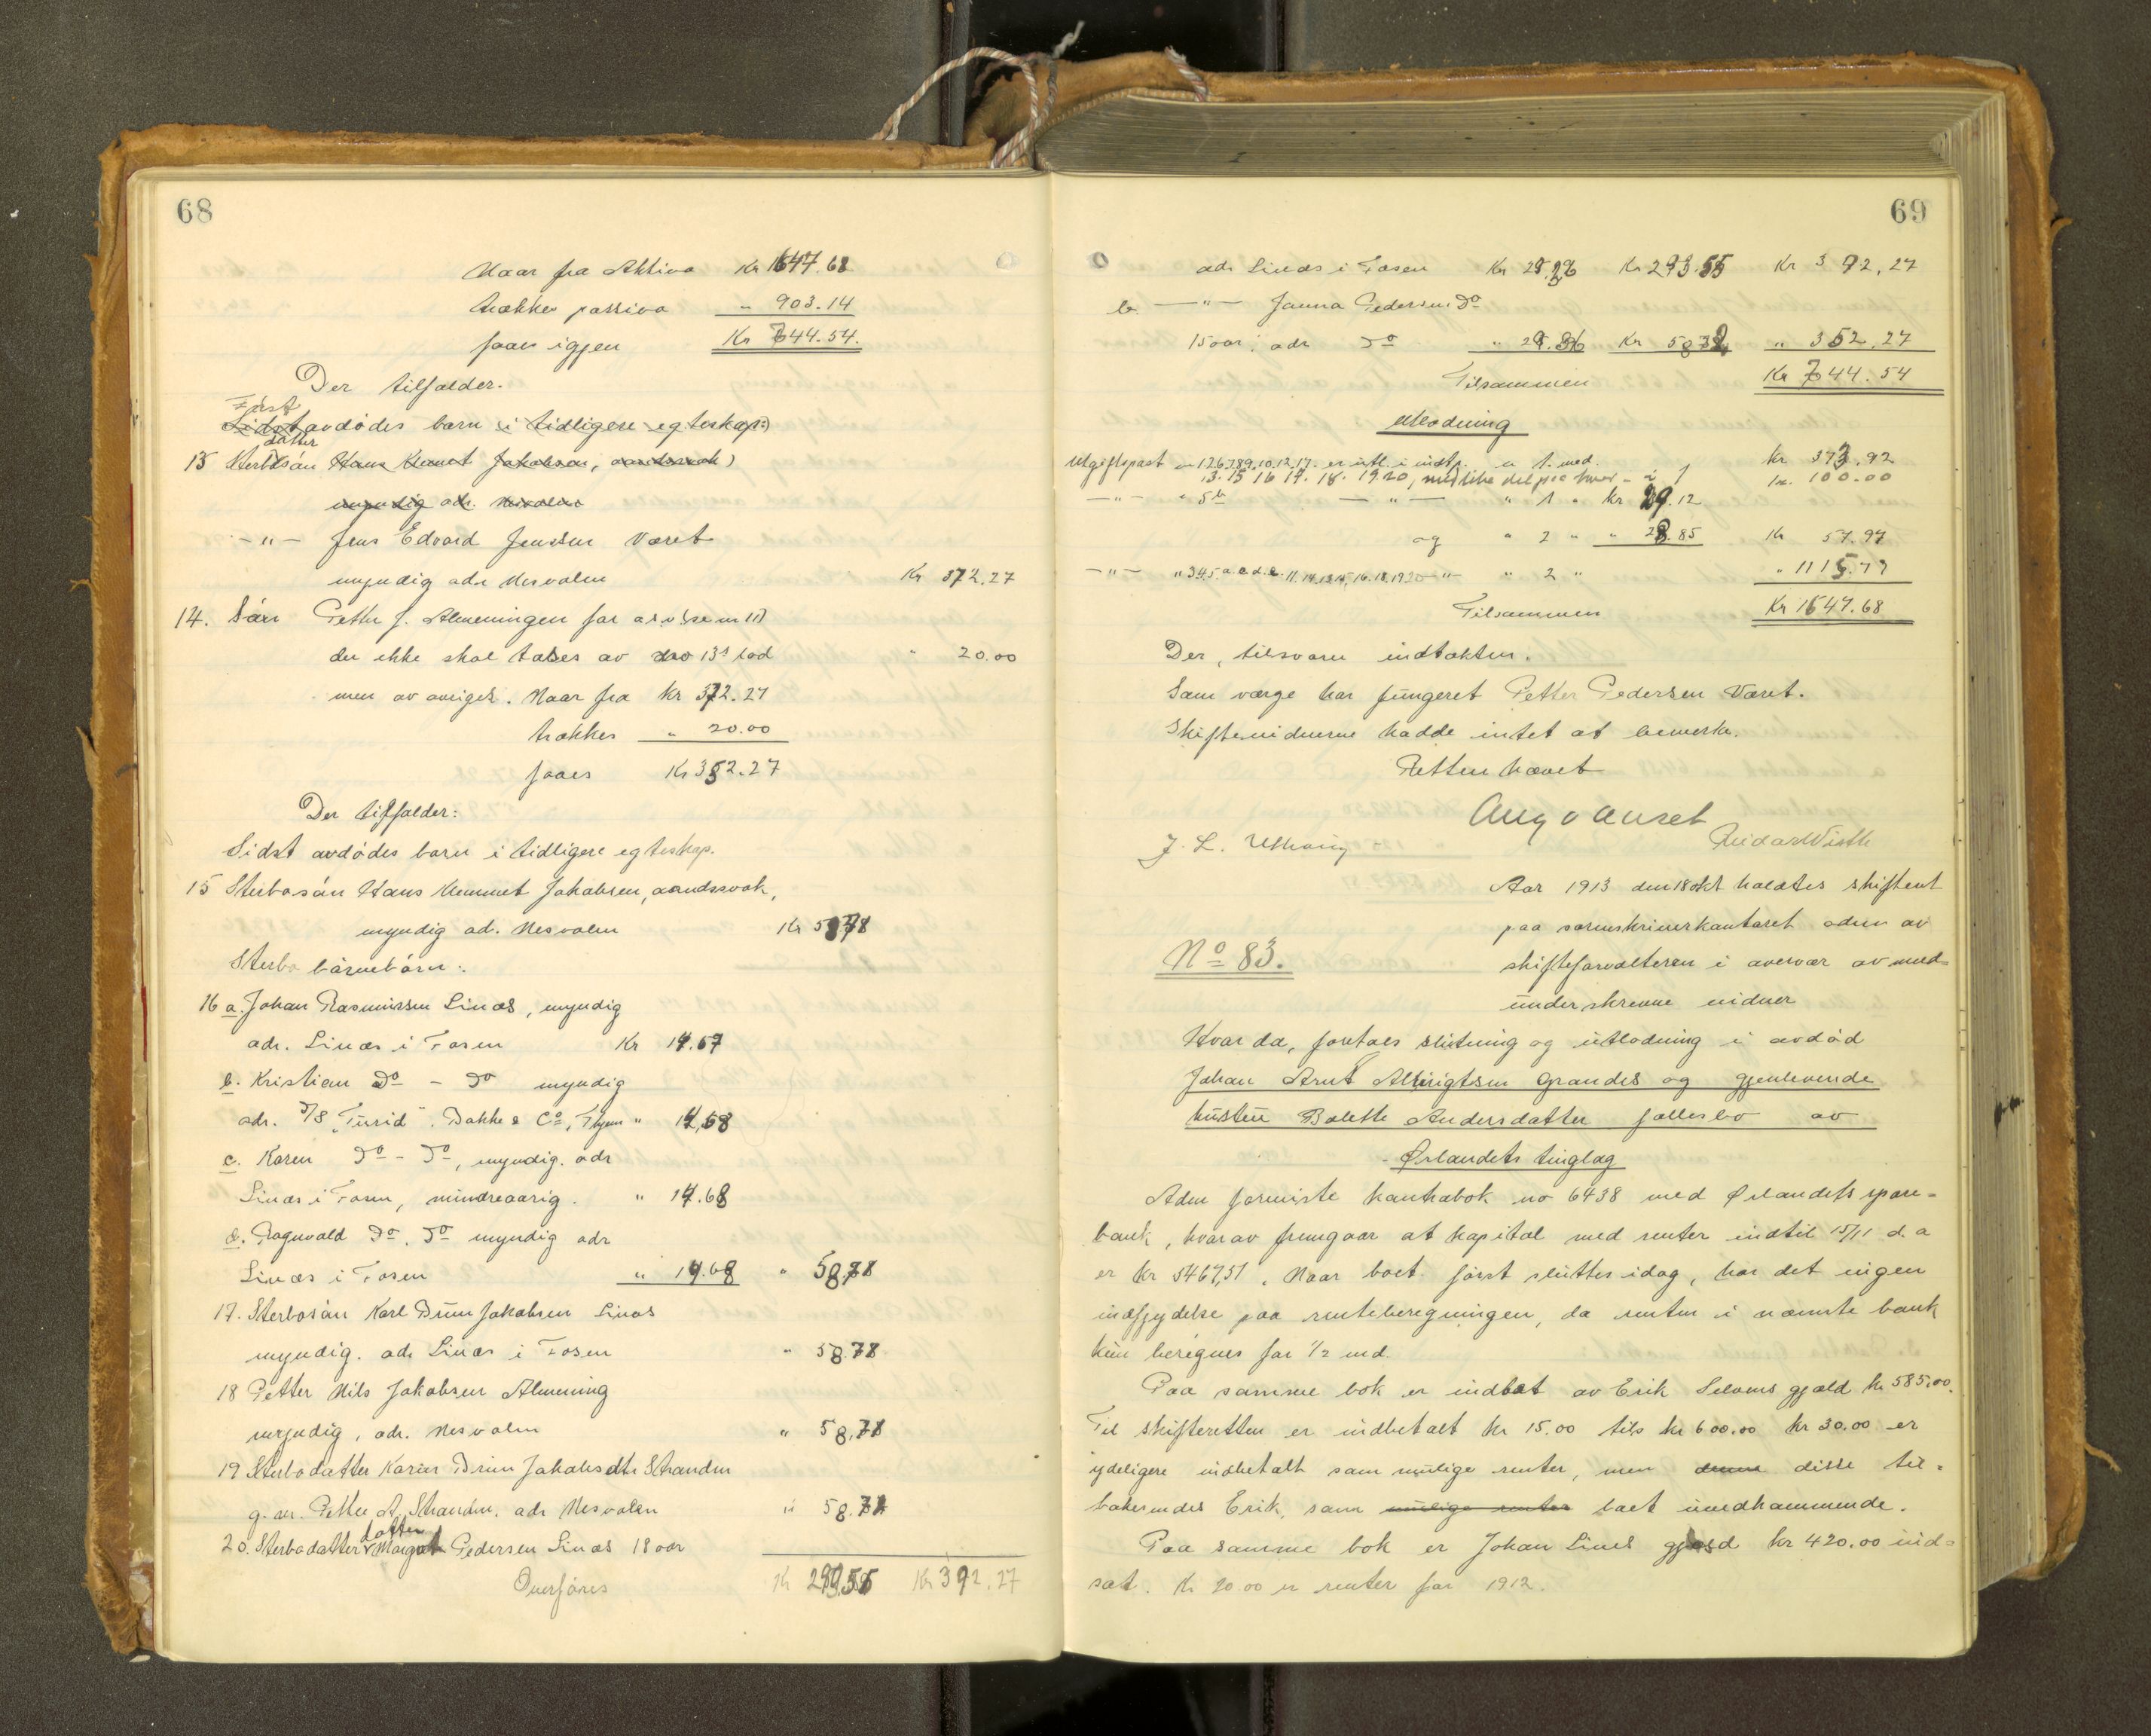 68
Naar fra Aktiva Kr 1647.68
trækkes passiva " 903.14
faaes igjen Kr 744.54.
Der tilfalder.
Først
Sidst avdødes barn i tidligere egteskap:
datter
13 Sterbosøn Hans Kummet Jakobsen, aandssvak,
myndig adr. Nesvalen
-"- Jens Edvard Jenssen Været
myndig adr Nesvalen Kr 372.27
14. Søn Petter J. Almenningen far arv (se nr 11)
der ikke skal tages av dno 13s lod " 20.00
men av øvriges. Naar fra Kr 372.27
trækkes " 20.00
faaes Kr 352.27
Der tilfalder:
Sidst avdødes barn i tidligere egteskap.
15 Sterbosøn Hans Kummet Jakobsen, aandssvak,
myndig ad. Nesvalen Kr 58.78
Sterbo børnebørn:
16 a. Johan Rasmussen Linæs, myndig
adr. Linæs i Fosen Kr 14.67
b. Kristian Do - Do myndig
adr. D/S "Turid". Bakke & Co, Thjem " 14,68
c. Karen Do - Do, myndig. adr
Linæs i Fosen, mindreaarig. " 14.68
d. Ragnvald Do. Do myndig adr
Linæs i Fosen " 14.68 " 58.78
17. Sterbosøn Karl Brun Jakobsen Linæs
myndig. adr Linæs i Fosen " 58.78
18 Petter Nils Jakobsen Almening
myndig, adr. Nesvalen " 58,78
19 Sterbodatter Karen Brun Jakobsdtr Stranden
g. m. Petter A. Stranden. adr Nesvalen " 58.78
datter
20. Sterbodatter Margot Pedersen Linæs 18 aar
Overføres Kr 293.55 Kr 392.27
69
adr Linæs i Fosen Kr 29.36 Kr 293.55 Kr 392,27
b. -"- Janna Pedersen Do
15 aar, adr Do " 29.36 Kr 58.72 " 352.27
Tilsammen Kr 744.54
Utlodning
Utgiftspost nr 1.2.6.7.8.9.10.12.17. er utl. i indtp. nr 1. med. Kr 373.92
13. 15 16 17. 18. 19.20, med like del paa hver - i 1 kr. 100.00
-"- " 5b -"- " 1 " Kr 29.12
og " 2 " " 28.85 Kr 57.97
-"- " 3.4.5.a.c.d.e. 11.14.13.15, 16.18.19.20 -"- " 2 " " 1115.79
Tilsammen Kr 1647.68
Der, tilsvarer indtækten.
Som verge har fungeret Petter Pedersen Været.
Skiftevidnerne hadde intet at bemerke.
Retten hævet
Aug v Auset
J. L. Uthaug Reidar Wirth
Aar 1913 den 18 okt holdtes skifteret
paa sorenskriverkontoret adm av
No 83. skifteforvalteren i overvær av med-
underskrevne vidner
Hvor da, foretoes slutning og utlodning i avdød
Johan Arnt Albrigtsen Grandes og gjenlevende
hustru Bolette Andersdatter fællesbo av
Ørlandets tinglag
Adm forviste kontrabok no 6438 med Ørlandets spare-
bank, hvorav fremgaar at kapital med renter indtil 15/11 d. a
er Kr 5467,51. Naar boet først sluttes idag, har det ingen
indflydelse paa renteberegningen, da renten i nævnte bank
kun beregnes for 1/2 md.
Paa samme bok er indsat av Erik Selvens gjæld kr 585,00.
Til skifteretten er indbetalt kr 15.00 tils kr 600.00 kr 30.00 er
ydeligere indbetalt som mulige renter, men denne disse til-
bakesendes Erik, som mulige renter boet uvedkommende.
Paa samme bok er Johan Linæs gjæld kr 420.00 ind-
sat. Kr 20.00 er renter for 1912.